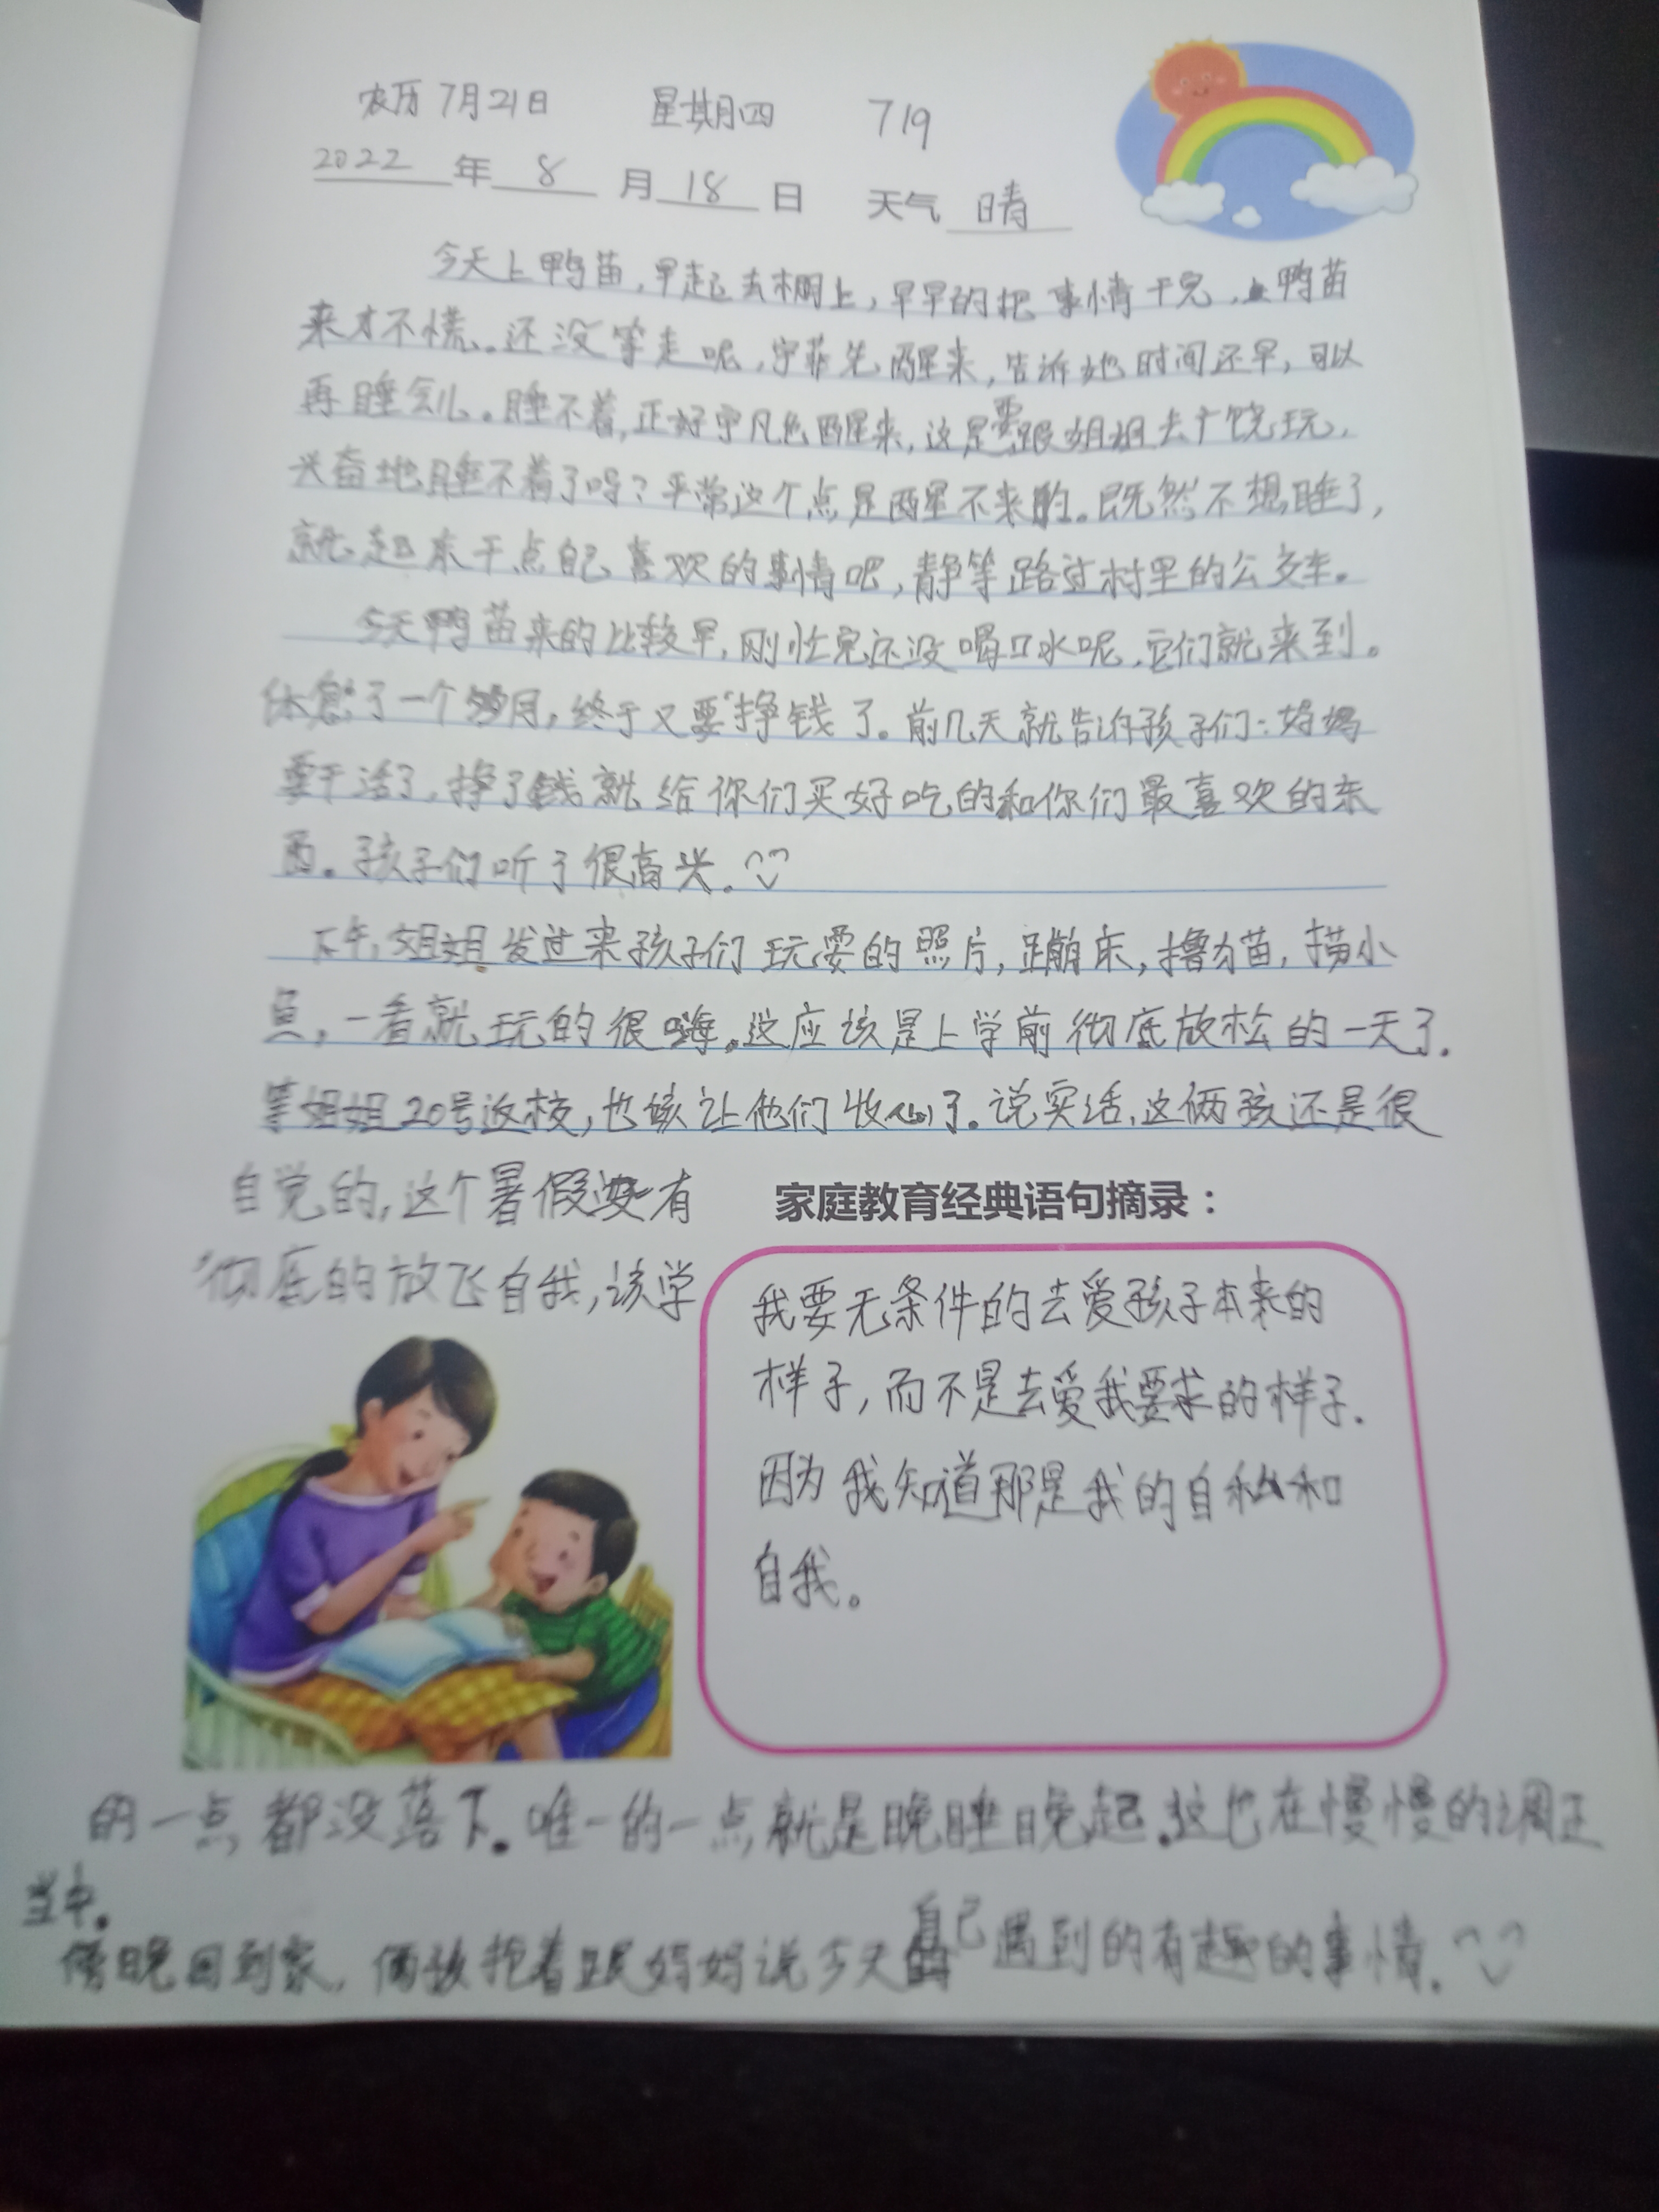 农历7月21日 星期四 719
2022年8月18日 天气 晴
今天上鸭苗,早起去棚上,早早的把事情干完,上鸭苗
来才不慌。还没等走呢,宁菲先醒来,告诉她时间还早,可以
再睡会儿。睡不着,正好宁凡也醒来,这是要跟姐姐去广饶玩,
兴奋地睡不着了吗?平常这个点是醒不来的。既然不想睡了,
就起来干点自己喜欢的事情吧,静等路过村里的公交车。
今天鸭苗来的比较早,刚忙完还没喝口水呢,它们就来到。
休息了一个多月,终于又要挣钱了。前几天就告诉孩子们:妈妈
要干活了,挣了钱就给你们买好吃的和你们最喜欢的东
西。孩子们听了很高兴。
下午,姐姐发过来孩子们玩耍的照片,蹦床,撸猫,捞小
鱼,一看就玩的很嗨。这应该是上学前彻底放松的一天了.
等姐姐20号返校,也该让他们收心了.说实话,这俩孩还是很
自觉的,这个暑假没有
彻底的放飞自我,该学
家庭教育经典语句摘录:
我要无条件的去爱孩子本来的
样子,而不是去爱我要求的样子.
因为我知道那是我的自私和
自我。
的一点都没落下.唯一的一点就是晚睡晚起.这也在慢慢的调正
当中.
傍晚回到家,俩孩抢着跟妈妈说今天自己遇到的有趣的事情.